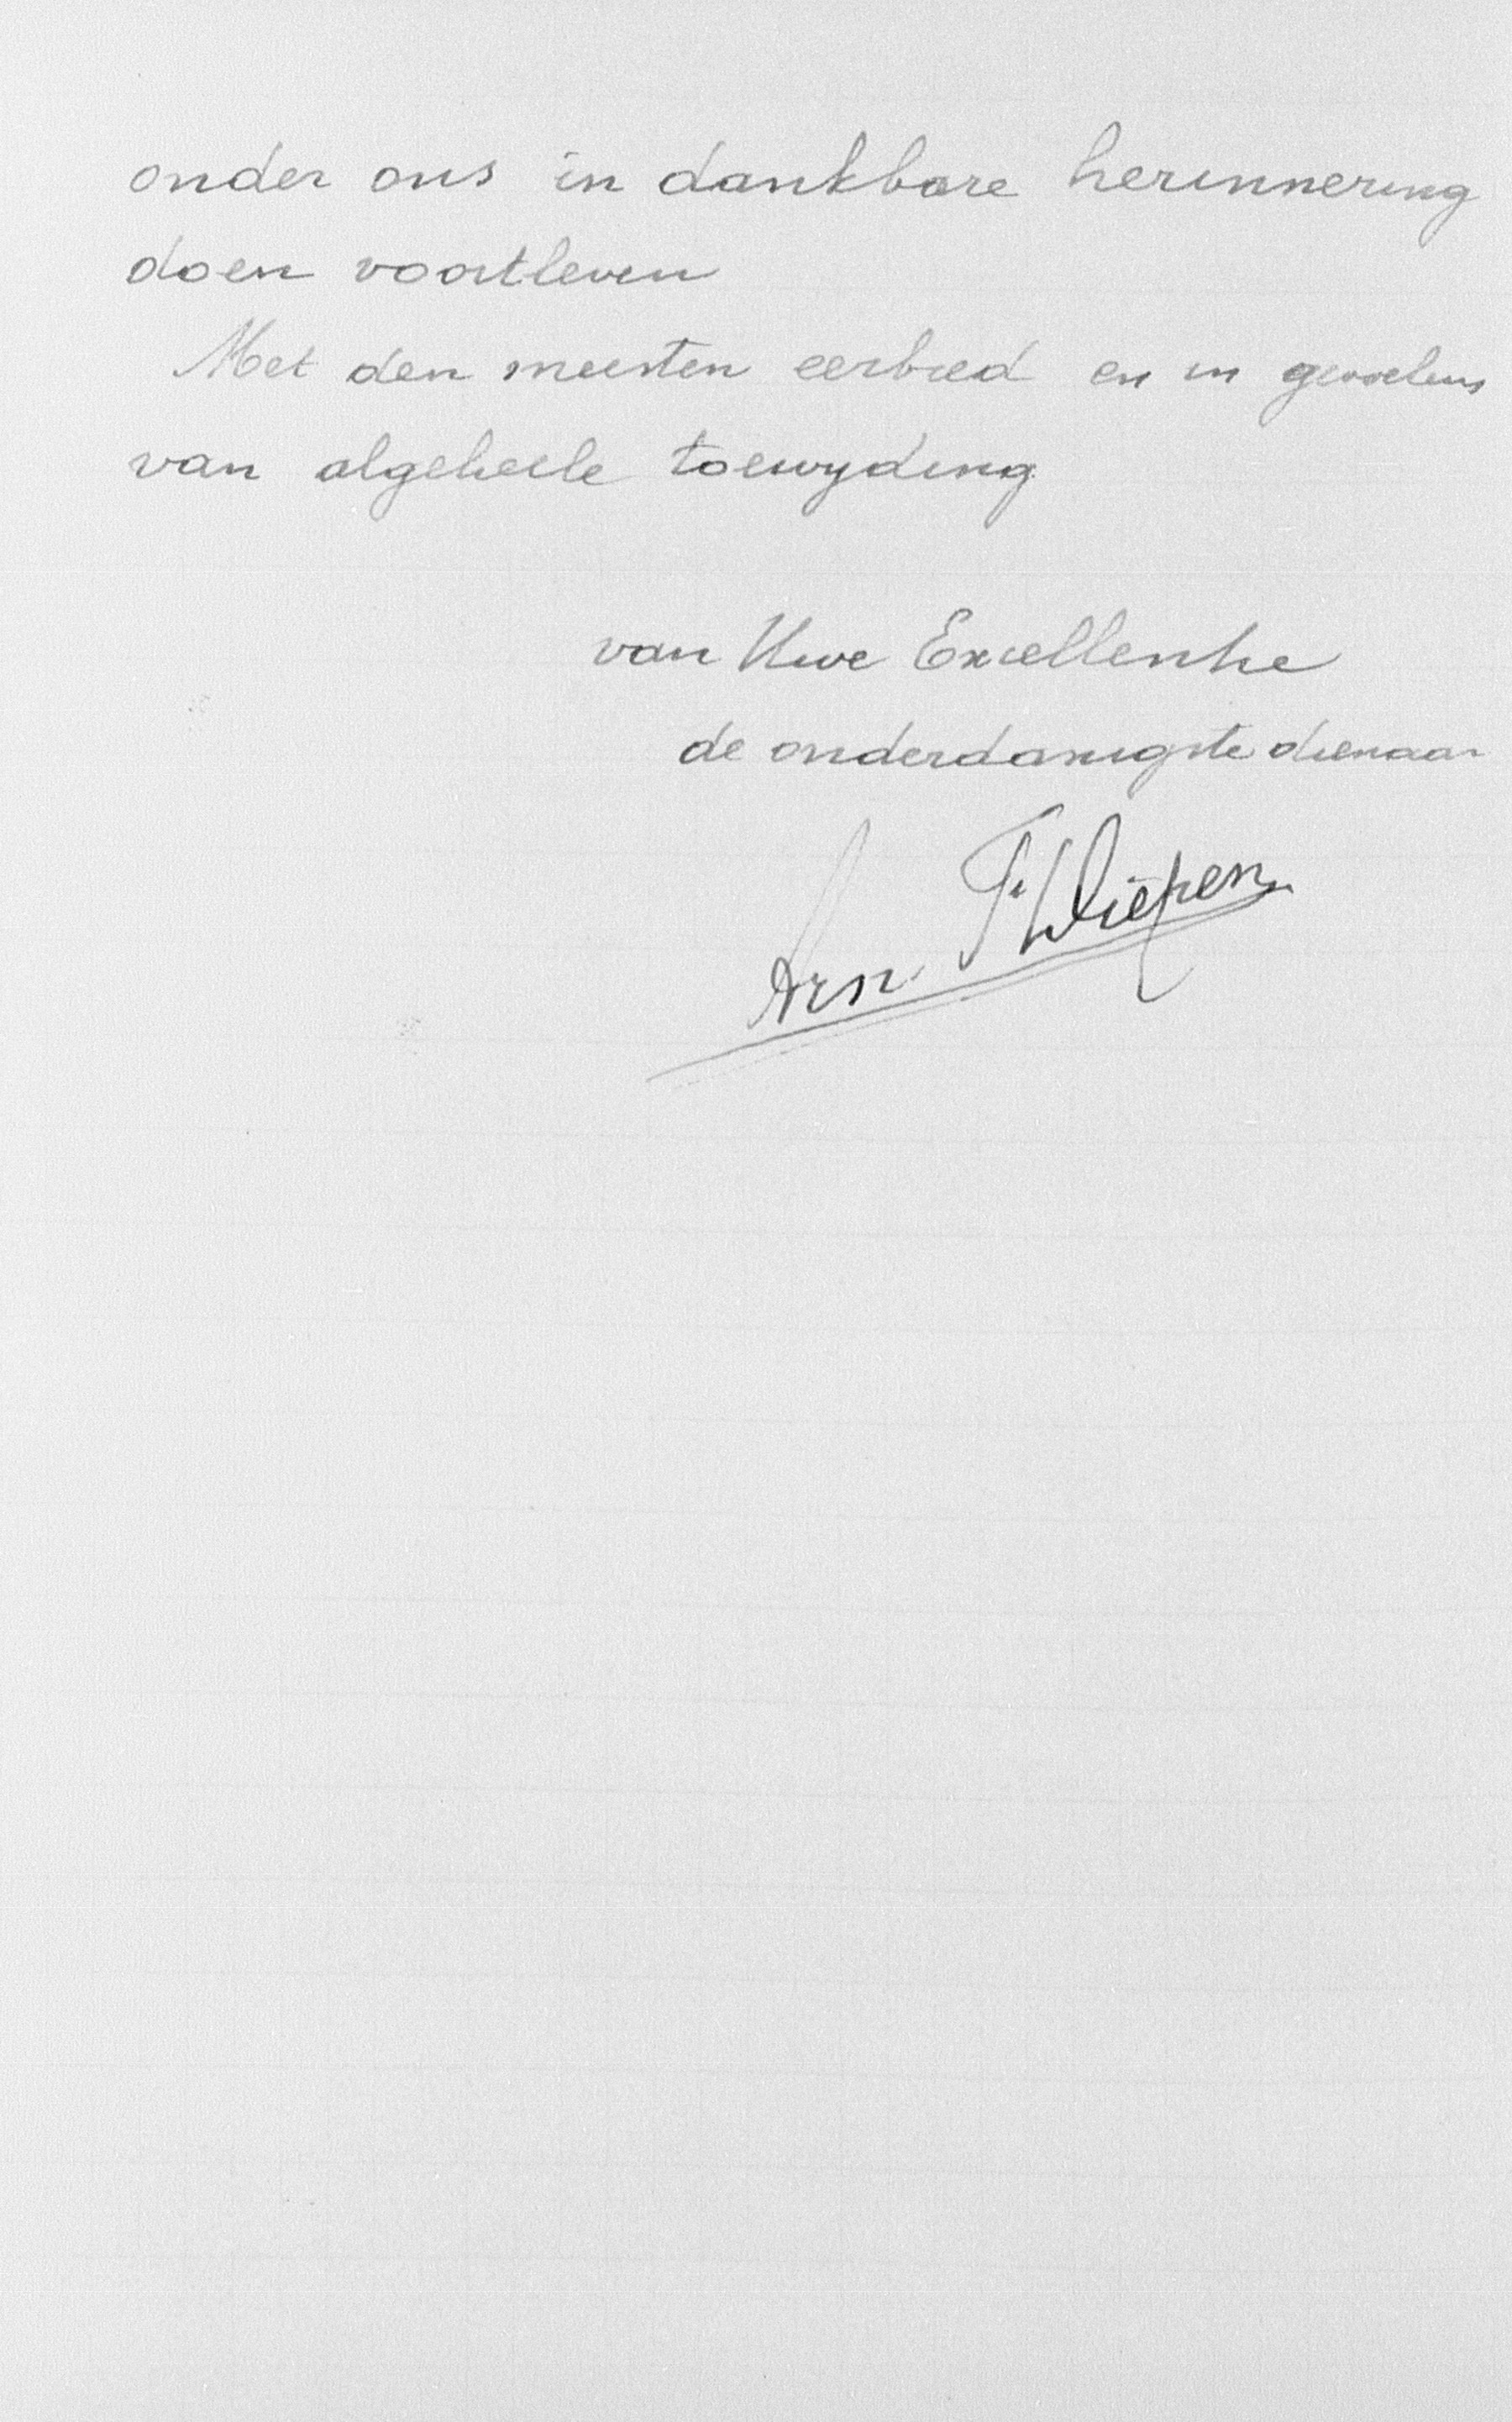 onder ons in dankbare herinnering
doen voortleven
Met den meesten eerbied en in gevoelens
van algeheele toewyding
van Uwe Excellentie
de onderdanigste dienaar
Arn F Diepen